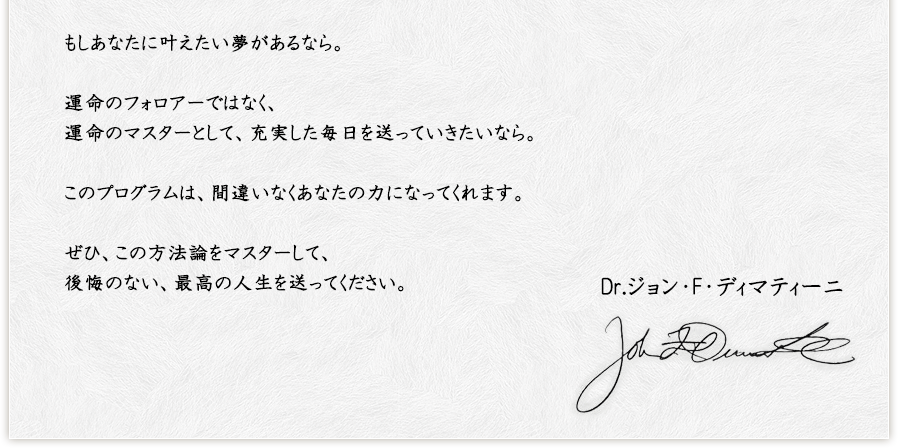 もしあなたに叶えたい夢があるなら。
運命のフォロアーではなく、
運命のマスターとして、充実した毎日を送っていきたいなら。
このプログラムは、間違いなくあなたの力になってくれます。
ぜひ、この方法論をマスターして、
後悔のない、最高の人生を送ってください。
Dr.ジョン・F・ディマティーニ